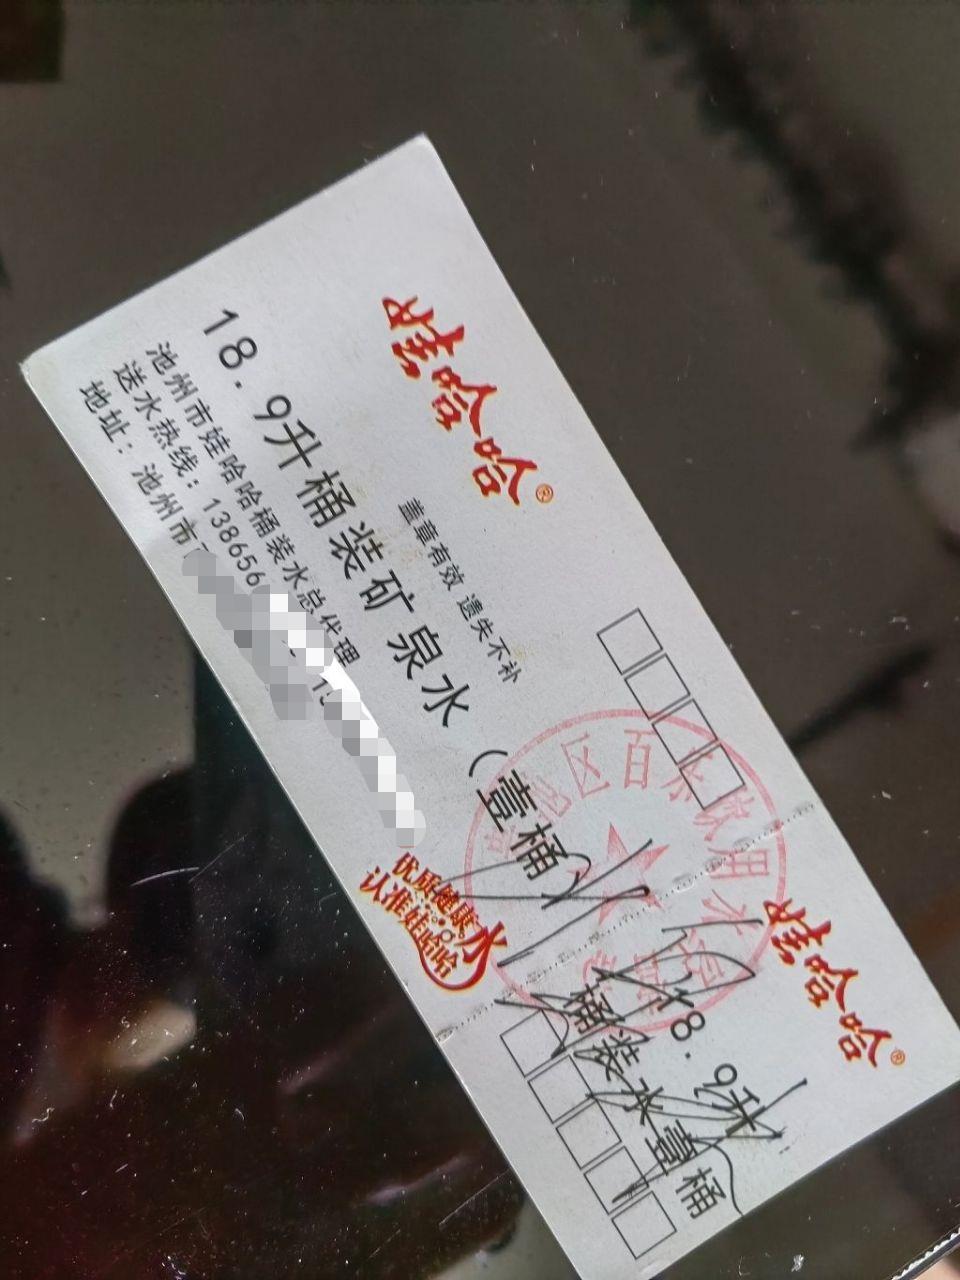 娃哈哈®
盖章有效 遗失不补
18.9升桶装矿泉水（壹桶）
池州市娃哈哈桶装水总代理
送水热线：138656
地址：池州市
优质健康水
认准娃哈哈
区百 饮用水
娃哈哈®
18.9升
桶装水壹桶